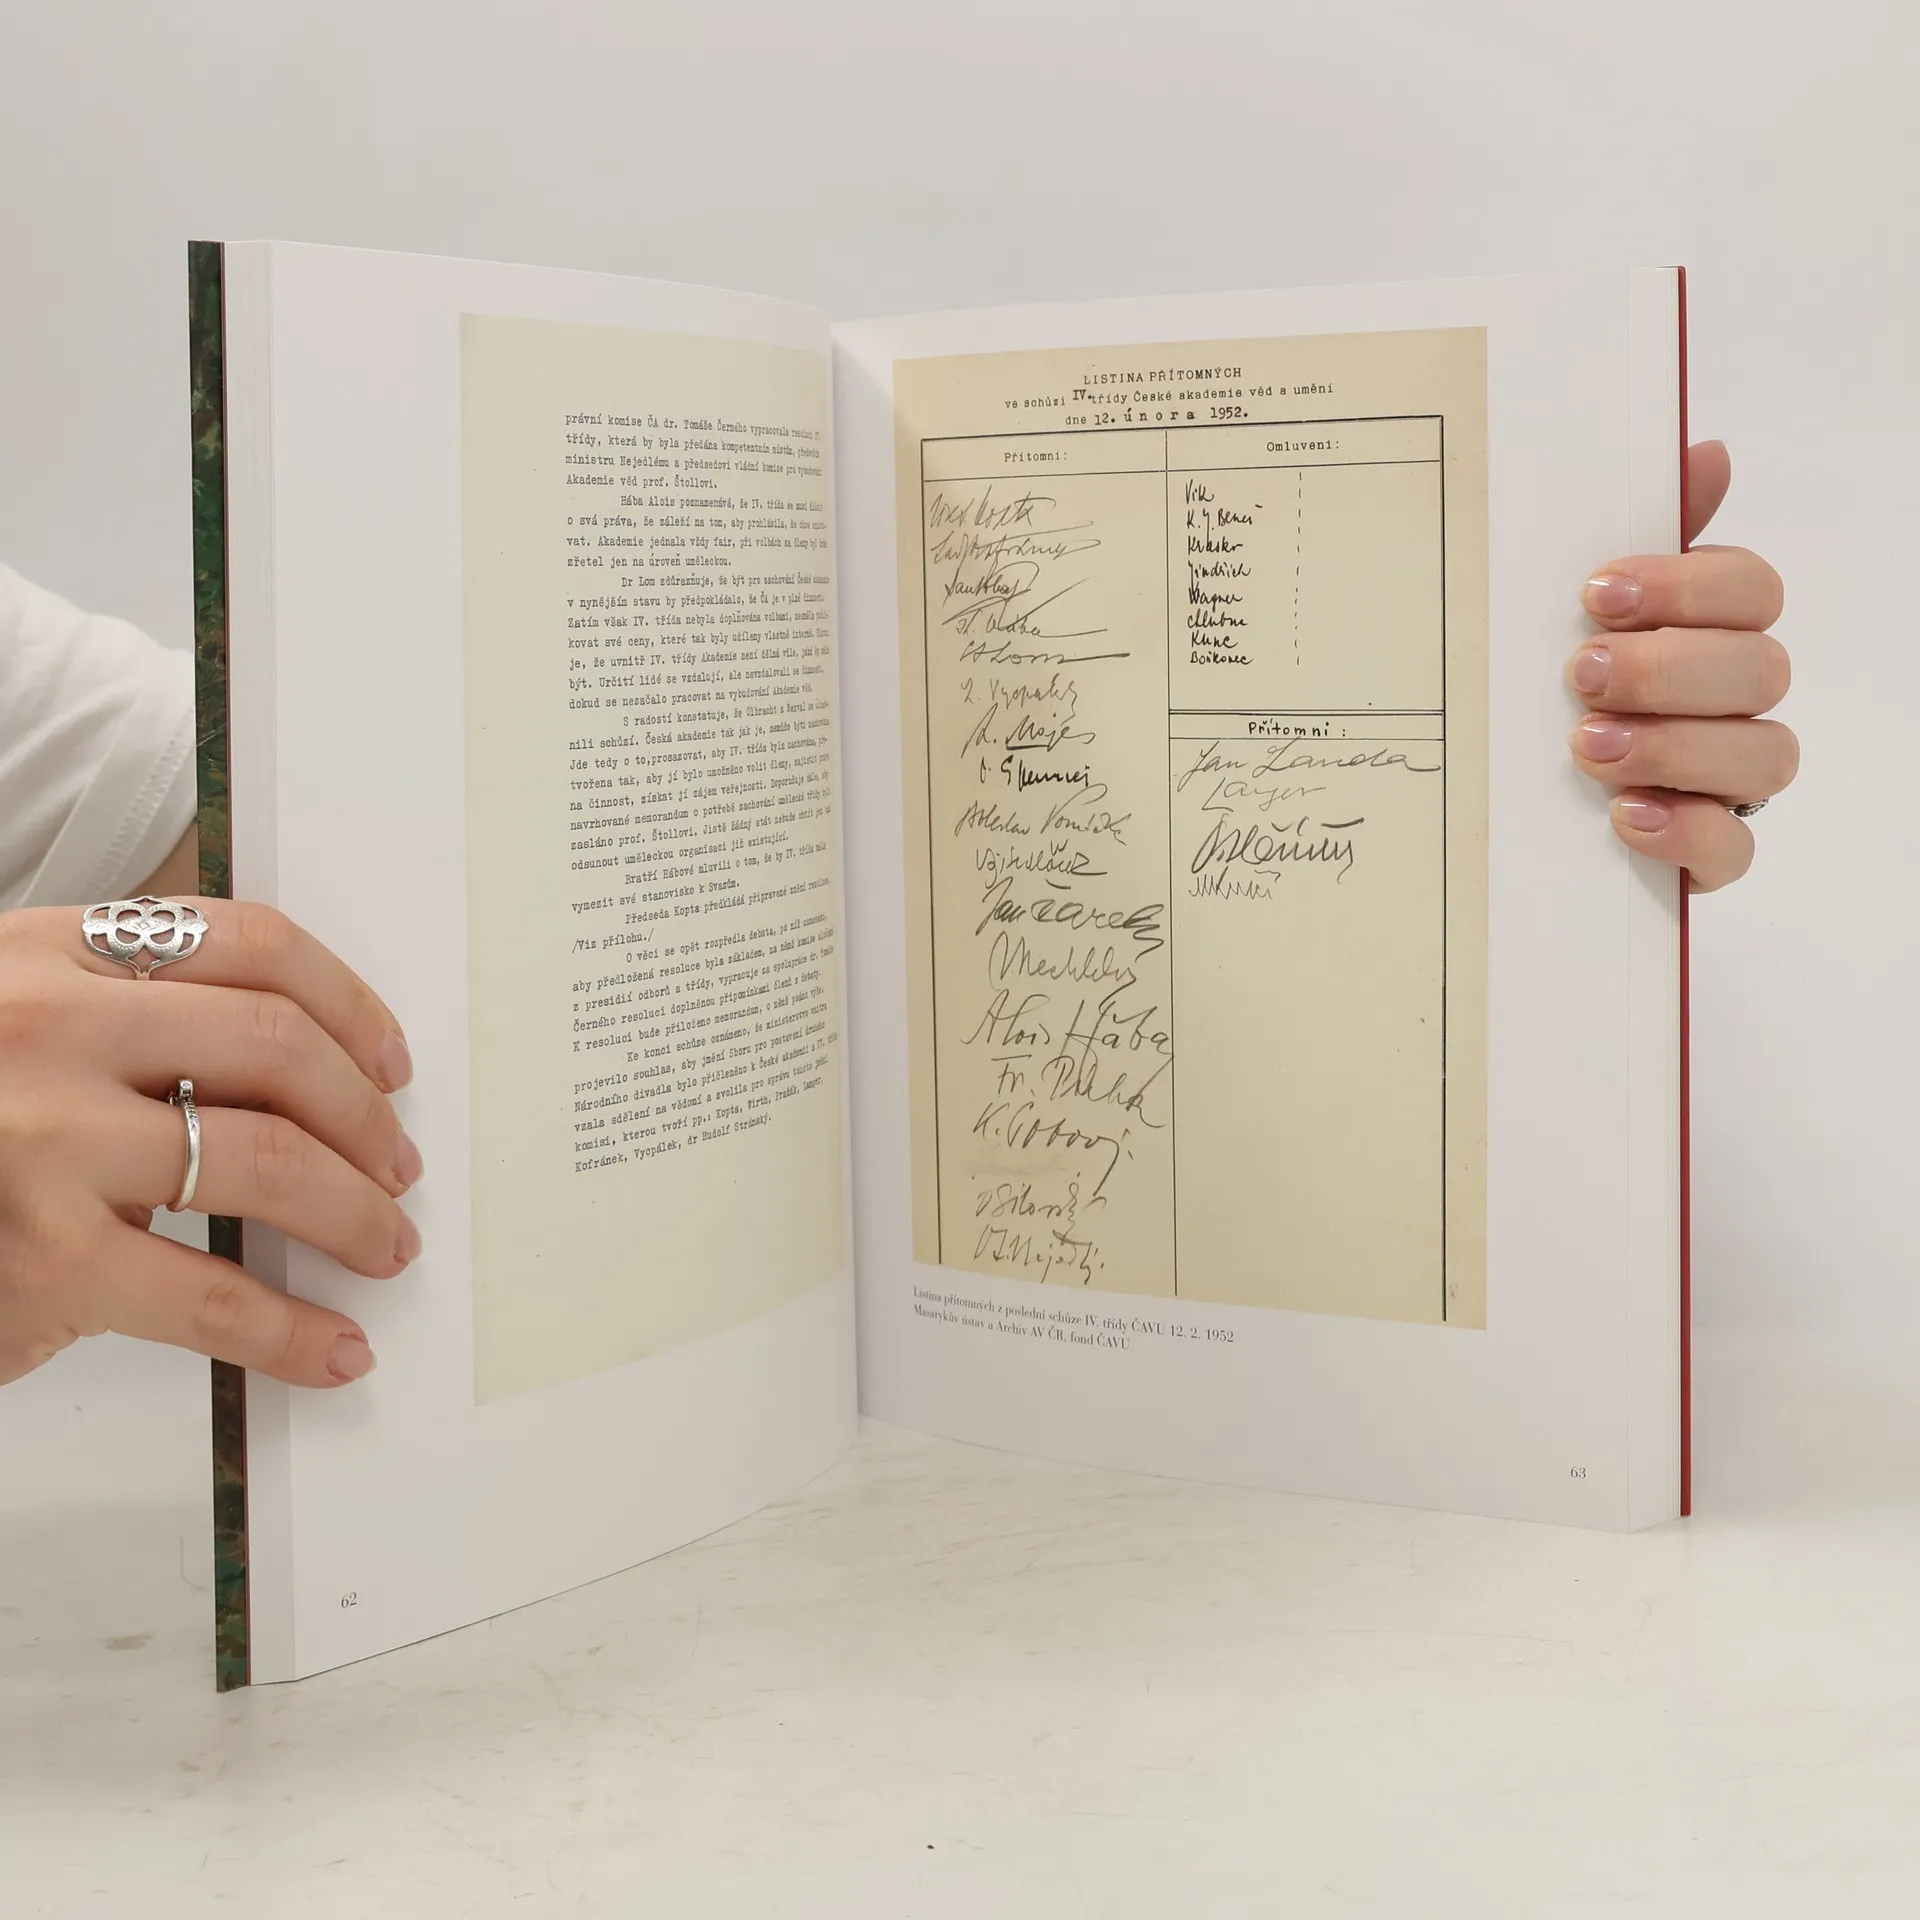 právní komise ČA dr. Tomáše Černého vypracovala resoluci IV.
třídy, která by byla předána kompetentním místům, především
ministru Nejedlému a předsedovi vládní komise pro vybudování
Akademie věd prof. Štollovi.
Hába Alois poznamenává, že IV. třída se musí
o svá práva, že záleží na tom, aby prohlásila, že chce
vat. Akademie jednala vždy fair, při volbách za členy byl
zřetel jen na úroveň uměleckou.
Dr Lom zdůrazňuje, že být pro zachování České
v nynějším stavu by předpokládalo, že ČA je v plné činnosti.
Zatím však IV. třída nebyla doplňována volbami, nesměla
kovat své ceny, které tak byly udíleny vlastně interně.
je, že uvnitř IV. třídy Akademie není dělná vůle, jaká by měla
být. Určití lidé se vzdalují, ale nevzdalovali se činnosti,
dokud se nezačalo pracovat na vybudování Akademie věd.
S radostí konstatuje, že Olbracht a Nezval se
nili schůzí. Česká akademie tak jak je, nemůže býti zachována.
Jde tedy o to,prosazovat, aby IV. třída byla zachována,
tvořena tak, aby jí bylo umožněno volit členy, zajistit
na činnost, získat jí zájem veřejnosti. Doporučuje dále, aby
navrhované memorandum o potřebě zachování umělecké třídy bylo
zasláno prof. Štollovi. Jistě žádný stát nebude chtít jen tak
odsunout uměleckou organisaci již existující.
Bratří Hábové mluvili o tom, že by IV. třída měla
vymezit své stanovisko k Svazům.
Předseda Kopta předkládá připravené znění
/Viz přílohu./
O věci se opět rozpředla debata, po níž usneseno,
aby předložená resoluce byla základem, na němž komise
z presidií odborů a třídy, vypracuje za spolupráce dr. Tomáše
Černého resoluci doplněnou připomínkami členů z debaty.
K resoluci bude přiloženo memorandum, o němž psáno výše.
Ke konci schůze oznámeno, že ministerstvo vnitra
projevilo souhlas, aby jmění Sboru pro postavení druhého
Národního divadla bylo přičleněno k České akademii a IV.
vzala sdělení na vědomí a zvolila pro správu tohoto jmění
komisi, kterou tvoří pp.: Kopta, Wirth, Pražák, Langer,
Kofránek, Vycpálek, dr Rudolf Stránský.
62
LISTINA PŘÍTOMNÝCH
ve schůzi IV. třídy České akademie věd a umění
dne 12. února 1952.
Přítomni:
Omluveni:
Josef Kopta
Lad. Kofránek
K. Hába
St Lom
L. Vycpálek
Boleslav Vomáčka
Jan Zázvorka
Alois Hába
Fr. Pražák
V. Silovský
V. Nejedlý
Vik
K. J. Beneš
Jindřich
Wagner
Chlubna
Kunc
Bořkovec
Přítomni :
Jan Zanda
Langer
Listina přítomných z poslední schůze IV. třídy ČAVU 12. 2. 1952
Masarykův ústav a Archiv AV ČR, fond ČAVU
63